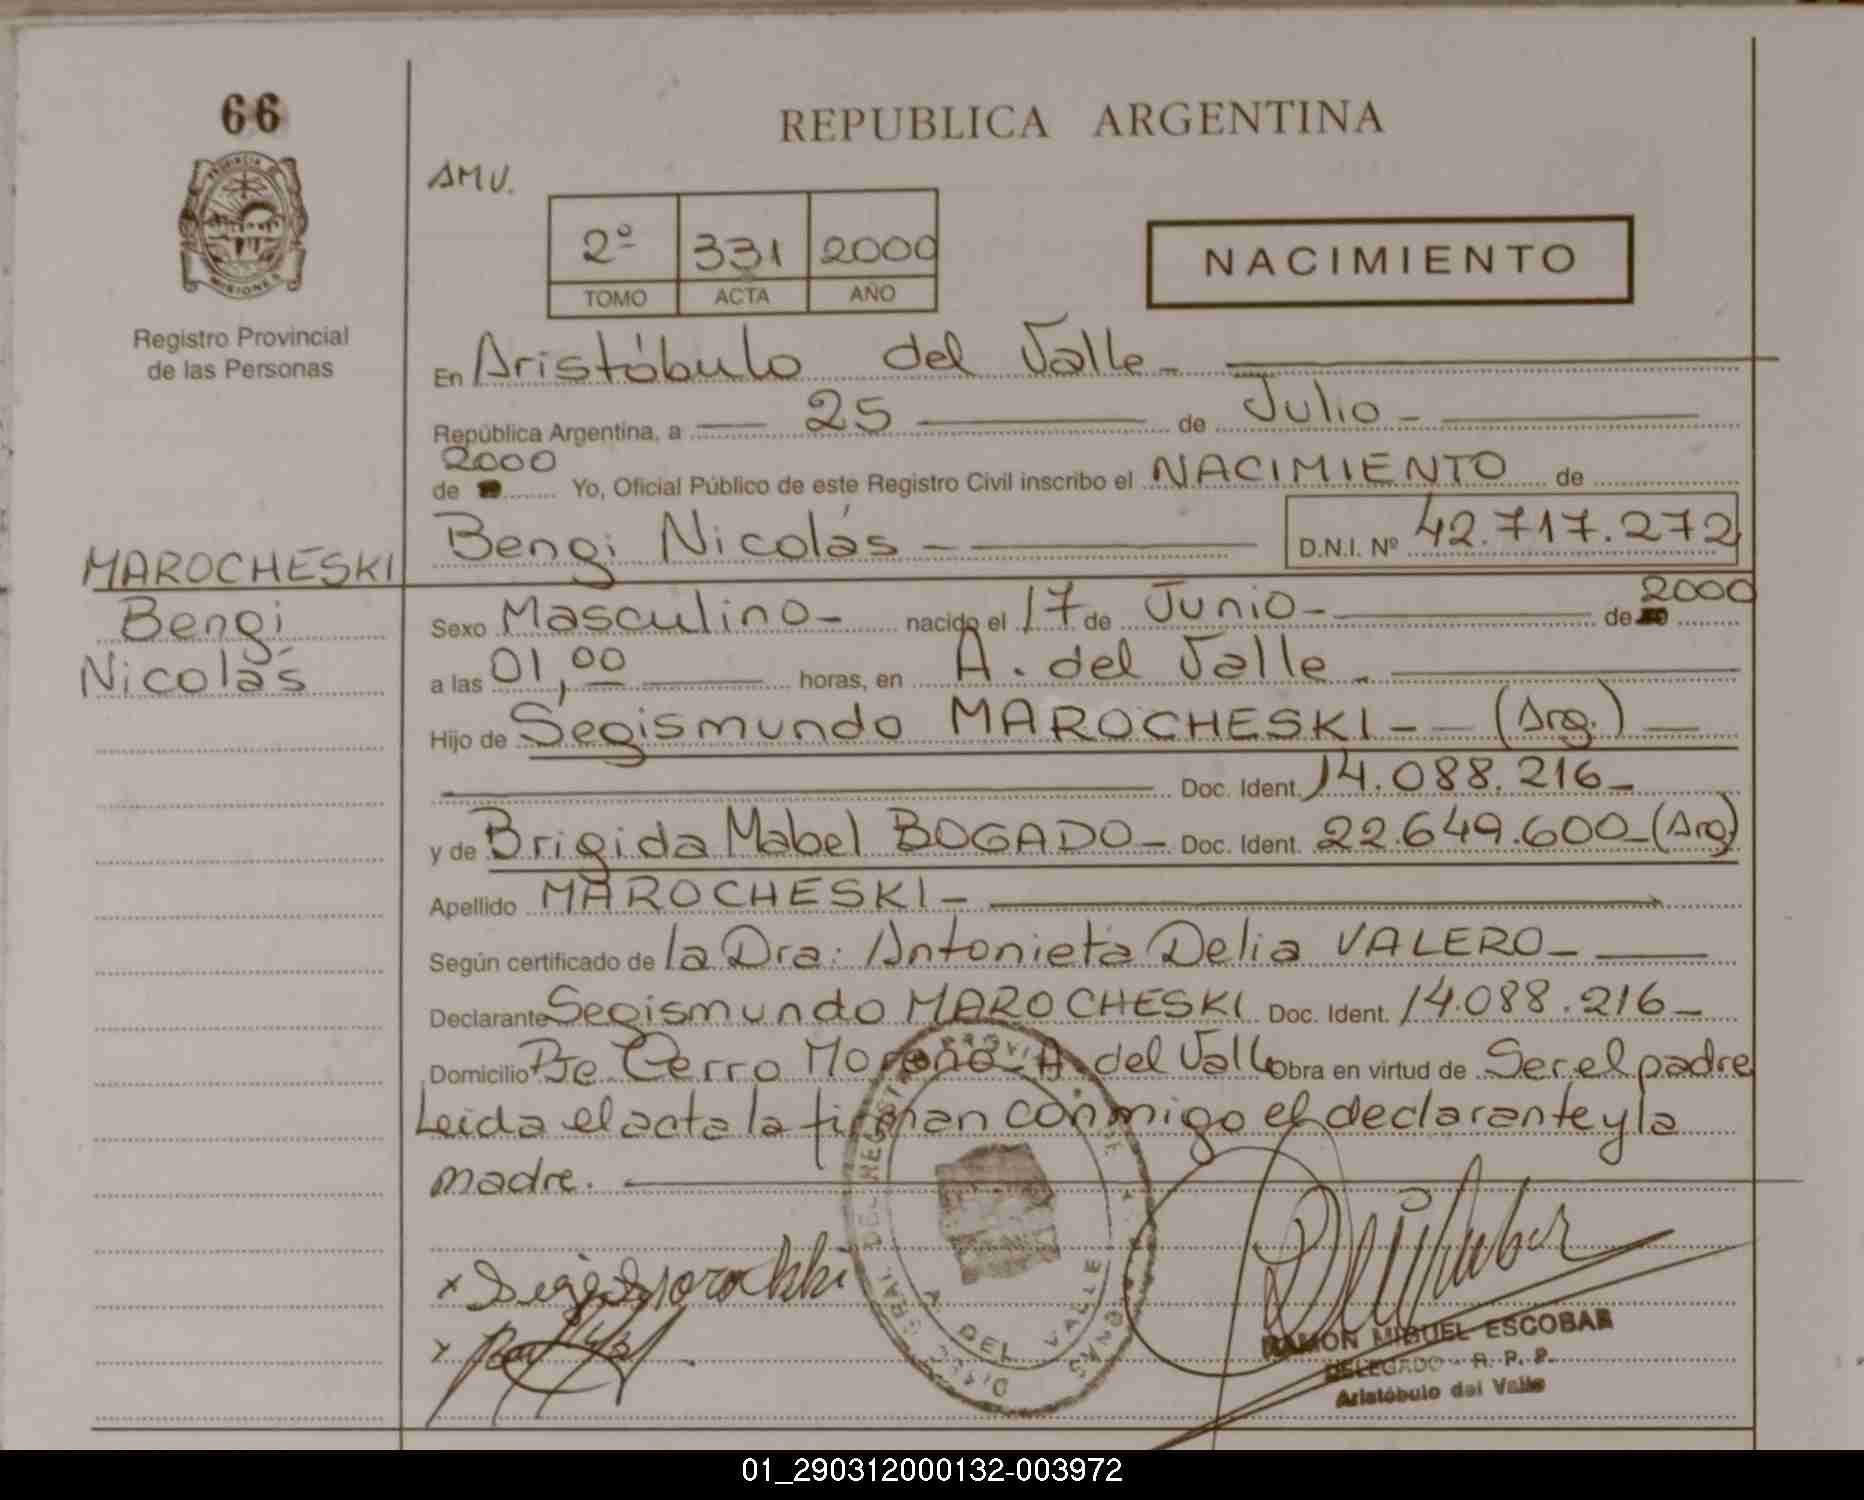 66
REPUBLICA ARGENTINA
AMV.
PROVINCIA DE MISIONES
2º 331 2000
TOMO ACTA AÑO
NACIMIENTO
Registro Provincial
de las Personas
En Aristóbulo del Valle
República Argentina, a 25 de Julio
2000
de Yo, Oficial Público de este Registro Civil inscribo el NACIMIENTO de
Bengi Nicolás D.N.I. Nº 42.717.272
MAROCHESKI
Bengi
Nicolás
2000
Sexo Masculino nacido el 17 de Junio de
a las 01,00 horas, en A. del Valle
Hijo de Segismundo MAROCHESKI (Arg.)
Doc. Ident. 14.088.216
y de Brigida Mabel BOGADO Doc. Ident. 22.649.600 (Arg)
Apellido MAROCHESKI
Según certificado de la Dra: Antonieta Delia VALERO
Declarante Segismundo MAROCHESKI Doc. Ident. 14.088.216
Domicilio Pje Cerro Moreno A. del Valle Obra en virtud de Ser el padre
Leida el acta la firman conmigo el declarante y la
madre.
A. DEL VALLE
RAMON MIGUEL ESCOBAR
DELEGADO - R. P. P.
Aristóbulo del Valle
01_290312000132-003972